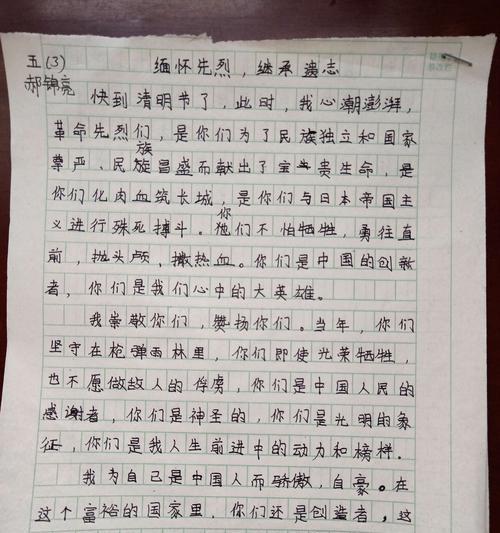 五(3)
郝锦亮
缅怀先烈，继承遗志
快到清明节了，此时，我心潮澎湃，
革命先烈们，是你们为了民族独立和国家
尊严、民族昌盛而献出了宝贵生命，是
你们化肉血筑长城，是你们与日本帝国主
义进行殊死搏斗。你们不怕牺牲，勇往直
前，抛头颅，撒热血。你们是中国的创新
者，你们是我们心中的大英雄。
我崇敬你们，赞扬你们。当年，你们
坚守在枪弹雨林里，你们即使光荣牺牲，
也不愿做敌人的俘虏，你们是中国人民的
感谢者，你们是神圣的，你们是光明的象
征，你们是我人生前进中的动力和榜样.
我为自己是中国人而骄傲，自豪。在
这个富裕的国家里，你们还是创造者，这